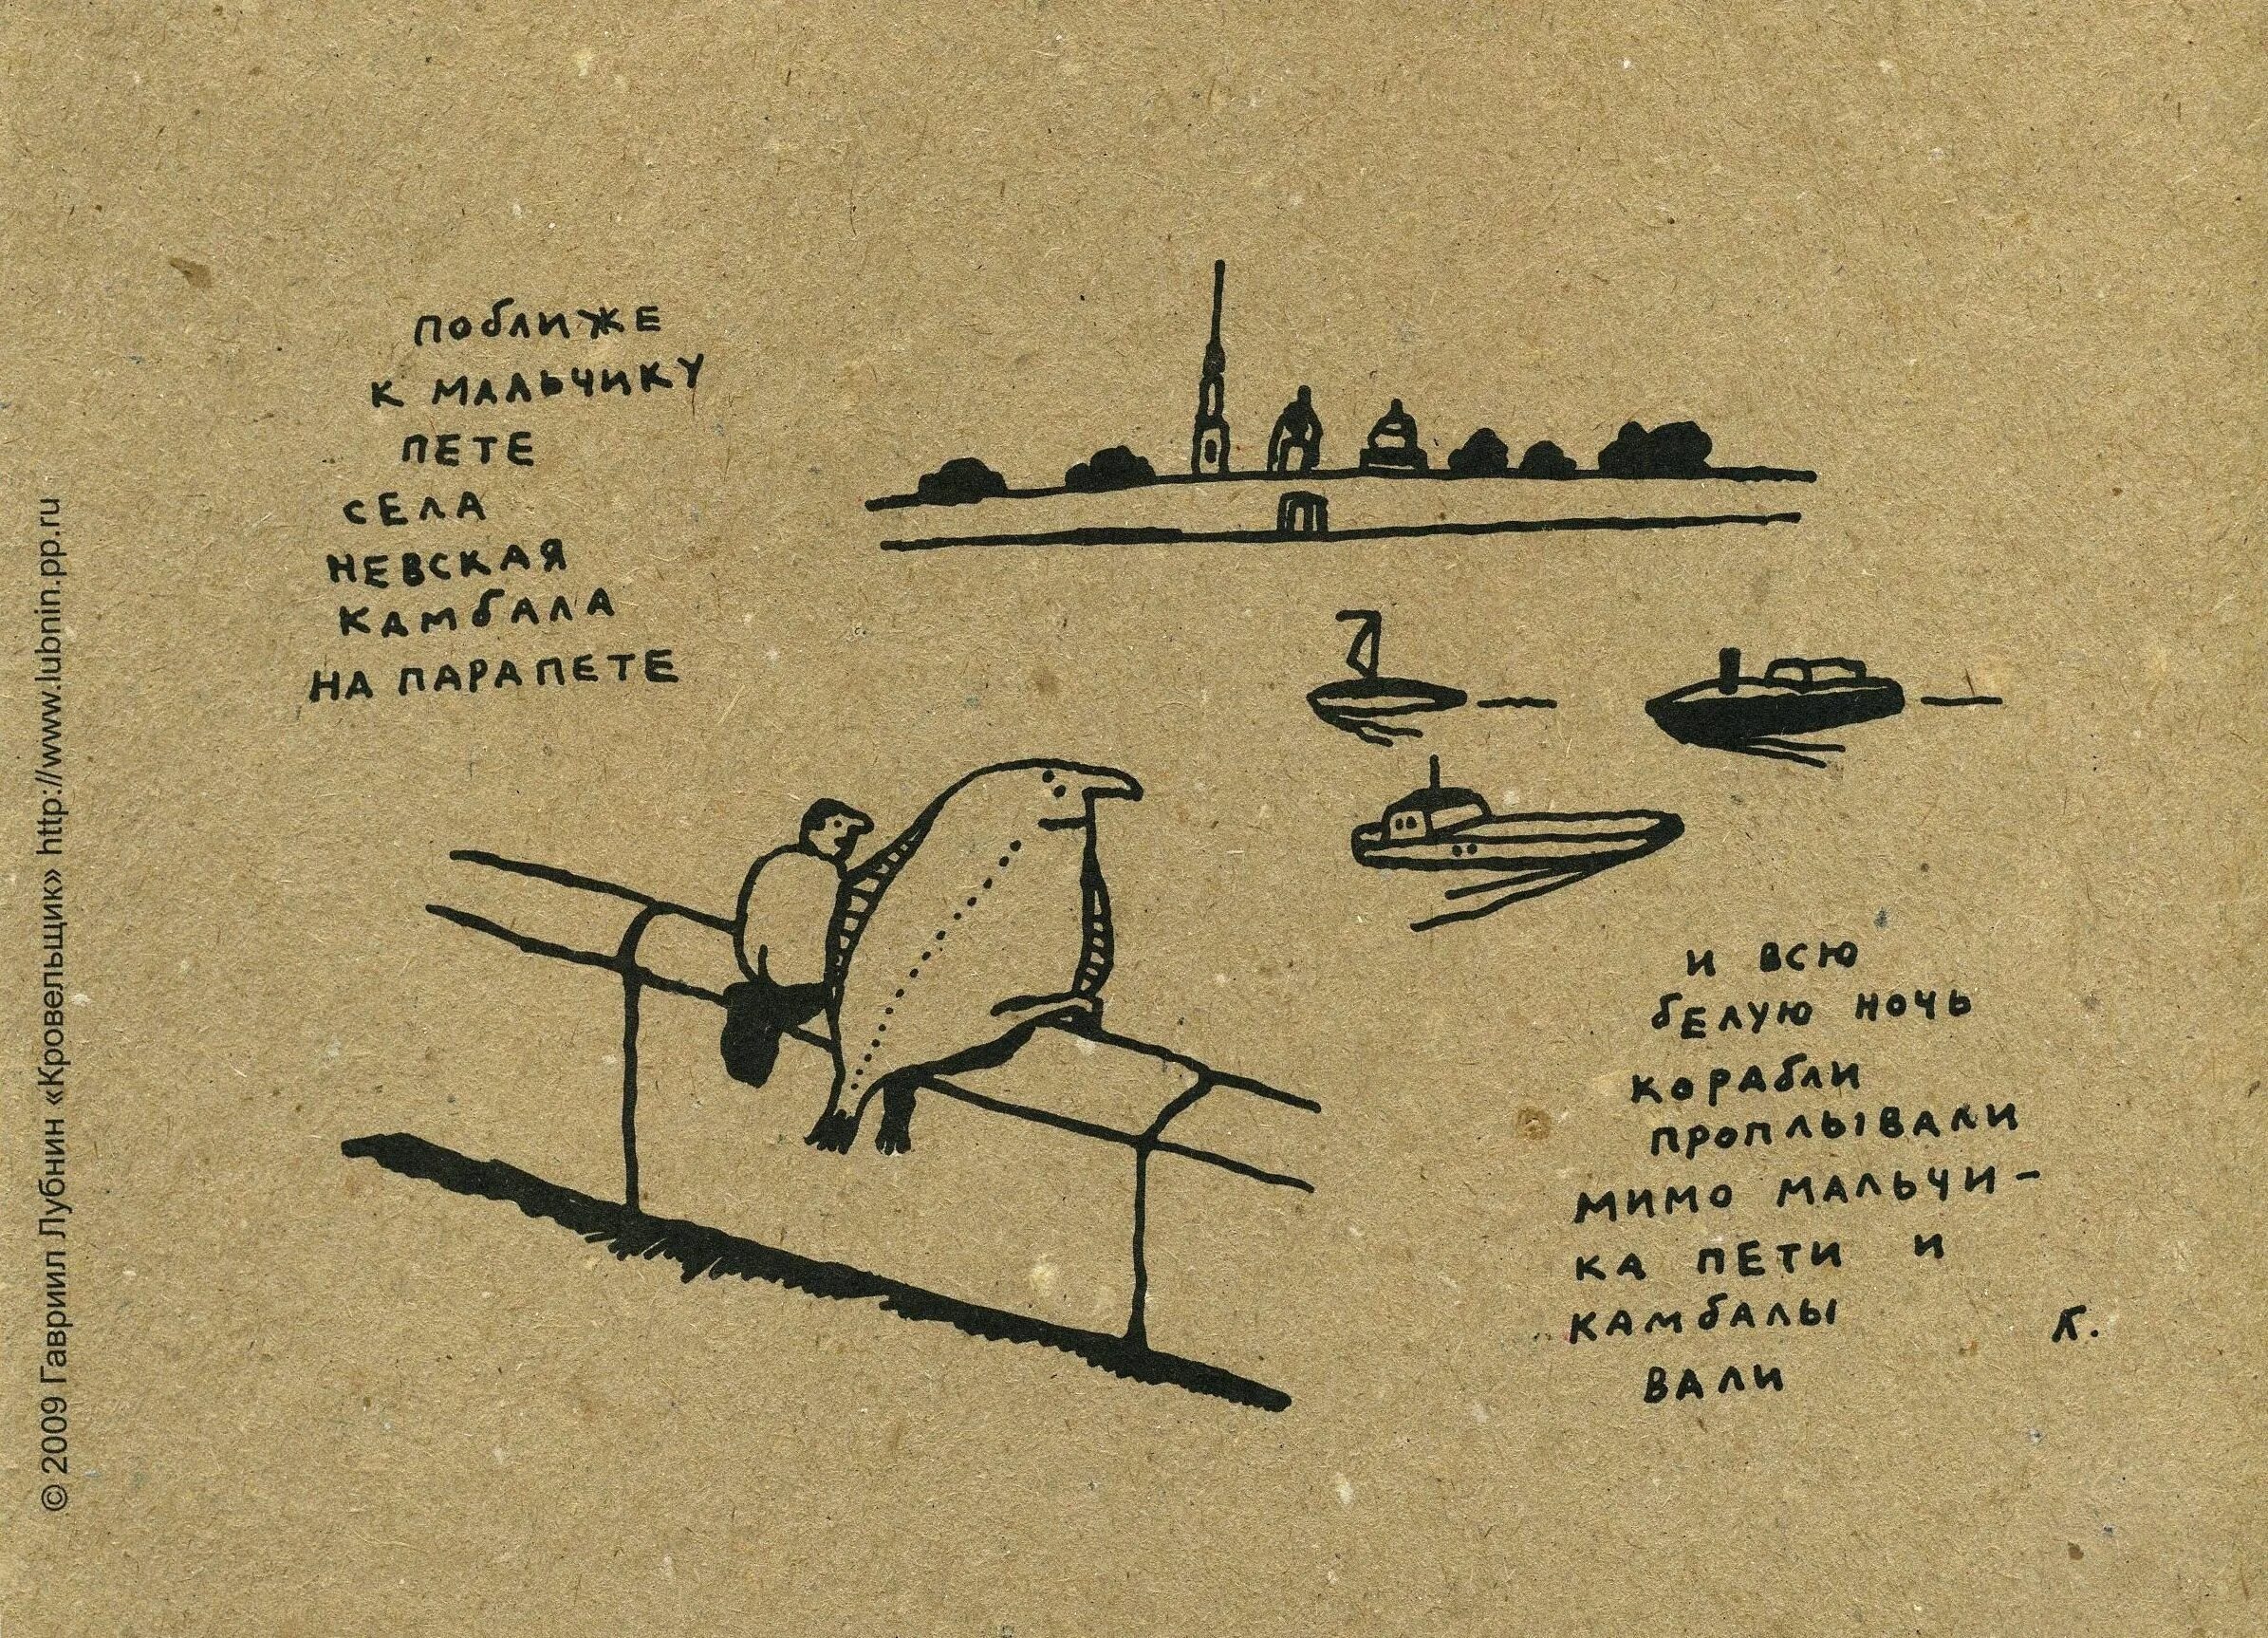 поближе
к мальчику
Пете
села
невская
камбала
на парапете
и всю
белую ночь
корабли
проплывали
мимо мальчи-
ка Пети и
камбалы
вали
Г.
© 2009 Гавриил Лубнин «Кровельщик» http://www.lubnin.pp.ru